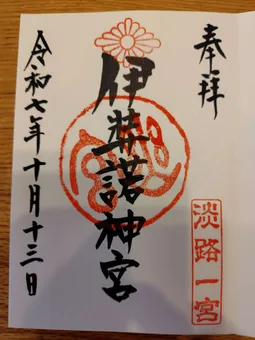 奉拝
伊弉諾神宮
淡路一宮
令和七年十月十三日